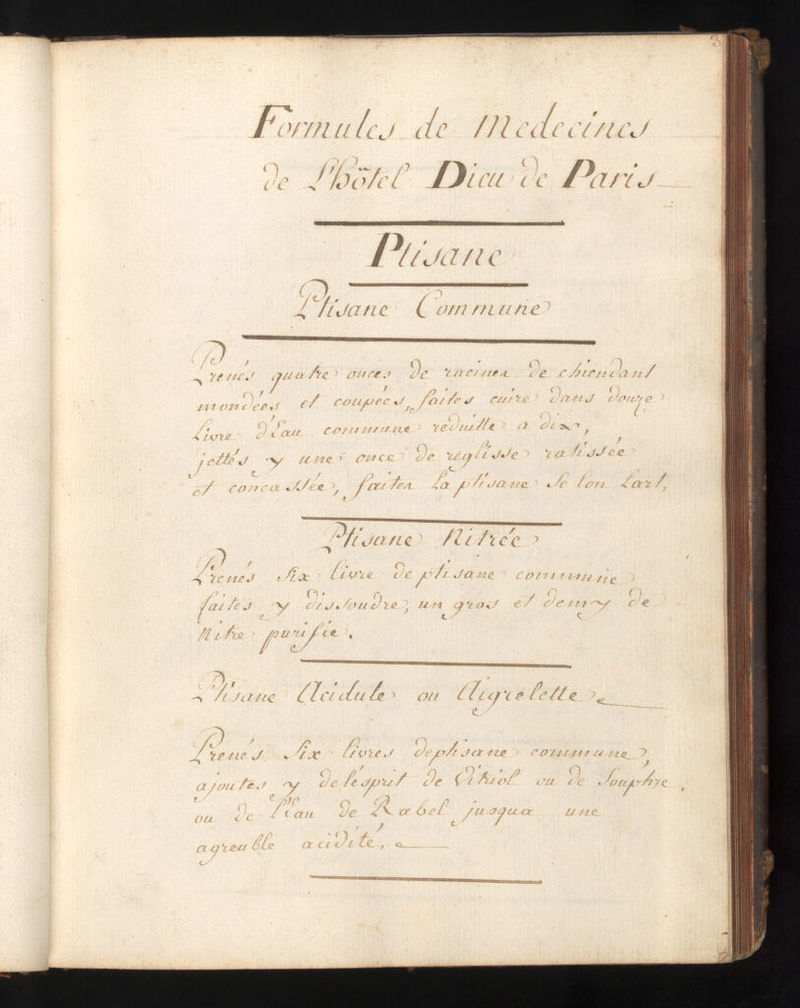 Formules de Medecines
de Lhôtel Dieu de Paris
Ptisane
Ptisane Commune
Prenés quatre onces de racines de chiendant
mondées et coupées, faites cuire dans douze
Livre d'Eau commune reduitte a dix,
jettés y une once de reglisse ratissée
et concassée, faites La ptisane se lon Lart,
Ptisane Nitrée
Prenés Six livre de ptisane commune
faites y dissoudre, un gros et demy de
Nitre purifie.
Ptisane Acidule ou Aigrelette
Prenés Six livres deptisane commune,
ajoutes y de lésprit de Vitriol ou de Souphre,
ou de l'Eau de Rabel jusqua une
agreable acidité,